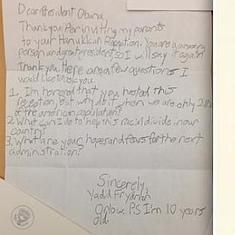 Dear President Obama,
Thank you for inviting my parents
to your Hanukkah Reception. You are an amazing
person and great president so I will say it again
Thank you. Here are a few questions I
would like to ask you
1. I'm honored that you hosted this
reception, but why do it when we are only 2%
of the american population?
2. What can I do to help in racial divide in our
country?
3. What are your hopes and fears for the next
administration?
Sincerely,
P.S I'm 10 years
old